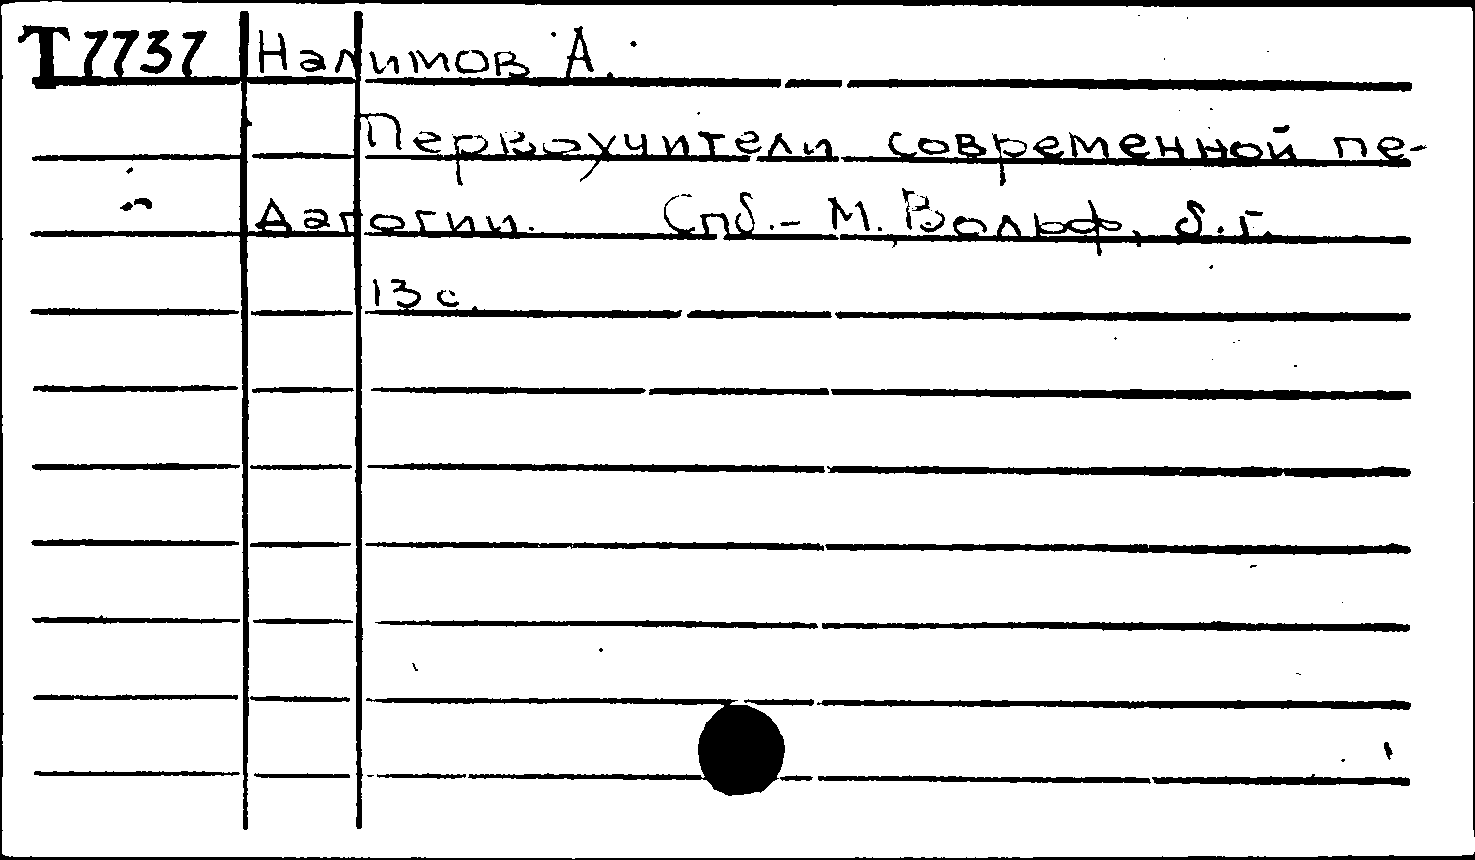 Т7737 Налимов А.
Первоучители современной пе-
дагогии. Спб.- М., Вольф, б.г.
13 с.